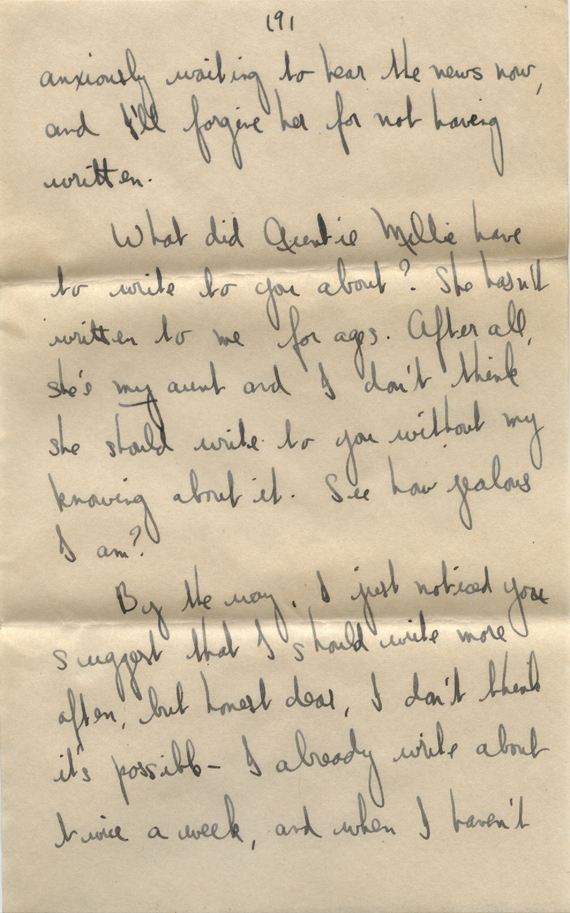 (9)
anxiously waiting to hear the news now,
and I'll forgive her for not having
written.
What did Auntie Mollie have
to write to you about? She hasn't
written to me for ages. After all,
she's my aunt and I don't think
she should write to you without my
knowing about it. See how jealous
I am?
By the way, I just noticed you
suggest that I should write more
often, but honest dear, I don't think
it's possible - I already write about
twice a week, and when I haven't